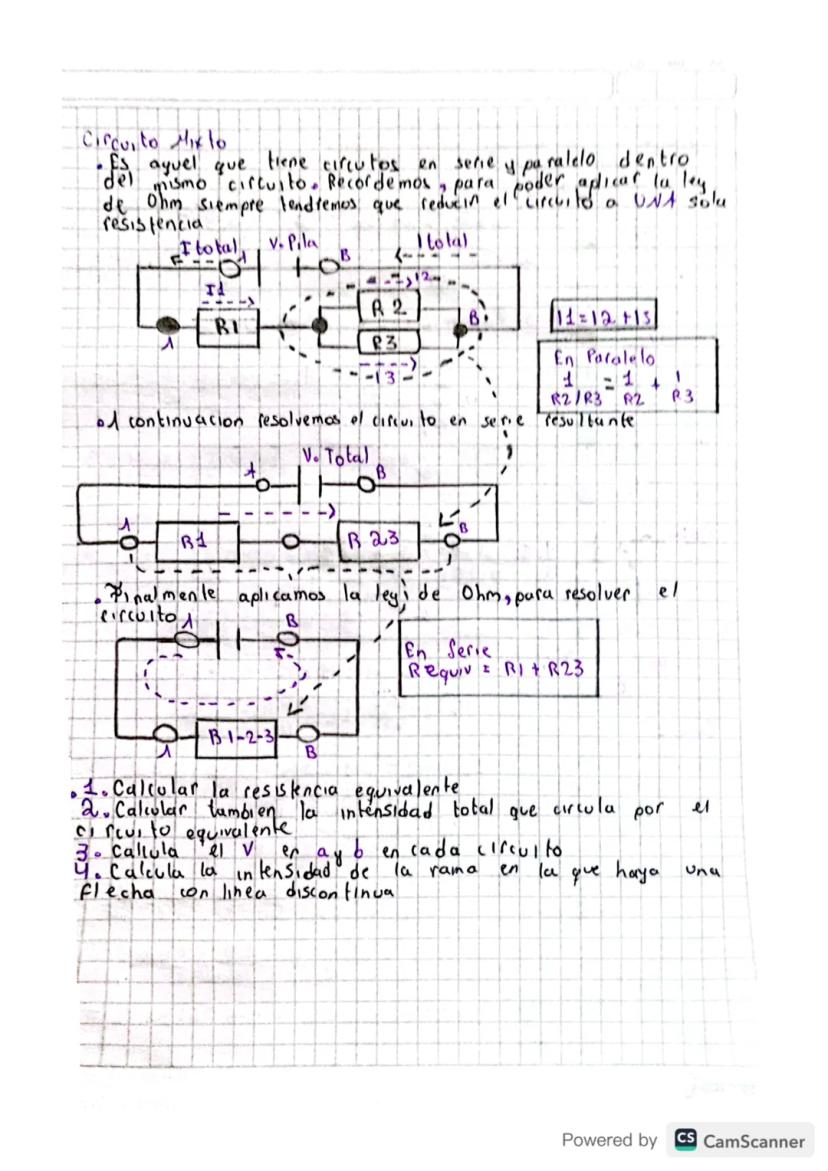 Circuito Mixto
• Es aquel que tiene circutos en serie y paralelo dentro
del mismo circuito. Recordemos, para poder aplicar la ley
de Ohm siempre tendremos que reducin el circuito a UNA sola
resistencia
I total A V. Pila B I total
I1 I2
R1 R2 B I1=I2+I3
A R3
I3
En Paralelo
1 = 1 + 1
R2/R3 R2 R3
• A continuacion resolvemos el circuito en serie resultante
V. Total
A B
A R1 R23 B
• Finalmente aplicamos la ley de Ohm, para resolver el
circuito A B
En Serie
Requiv = R1 + R23
A R1-2-3 B
• 1. Calcular la resistencia equivalente
2. Calcular tambien la intensidad total que circula por el
circuito equivalente
3. Calcula el V en a y b en cada circuito
4. Calcula la intensidad de la rama en la que haya una
flecha con linea discontinua
Powered by CS CamScanner